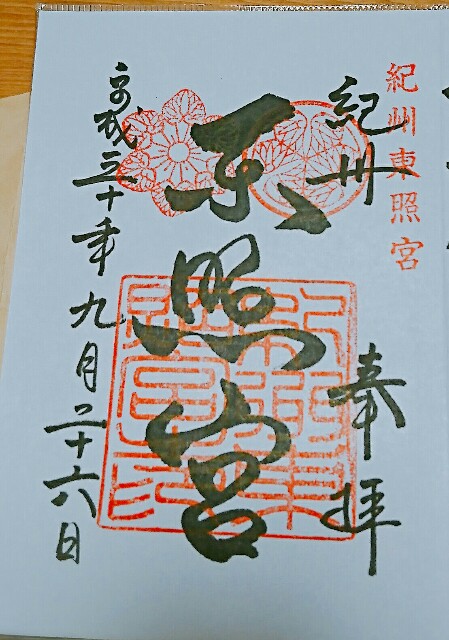 紀州東照宮
紀州
奉拝
東照宮
平成三十年九月二十六日